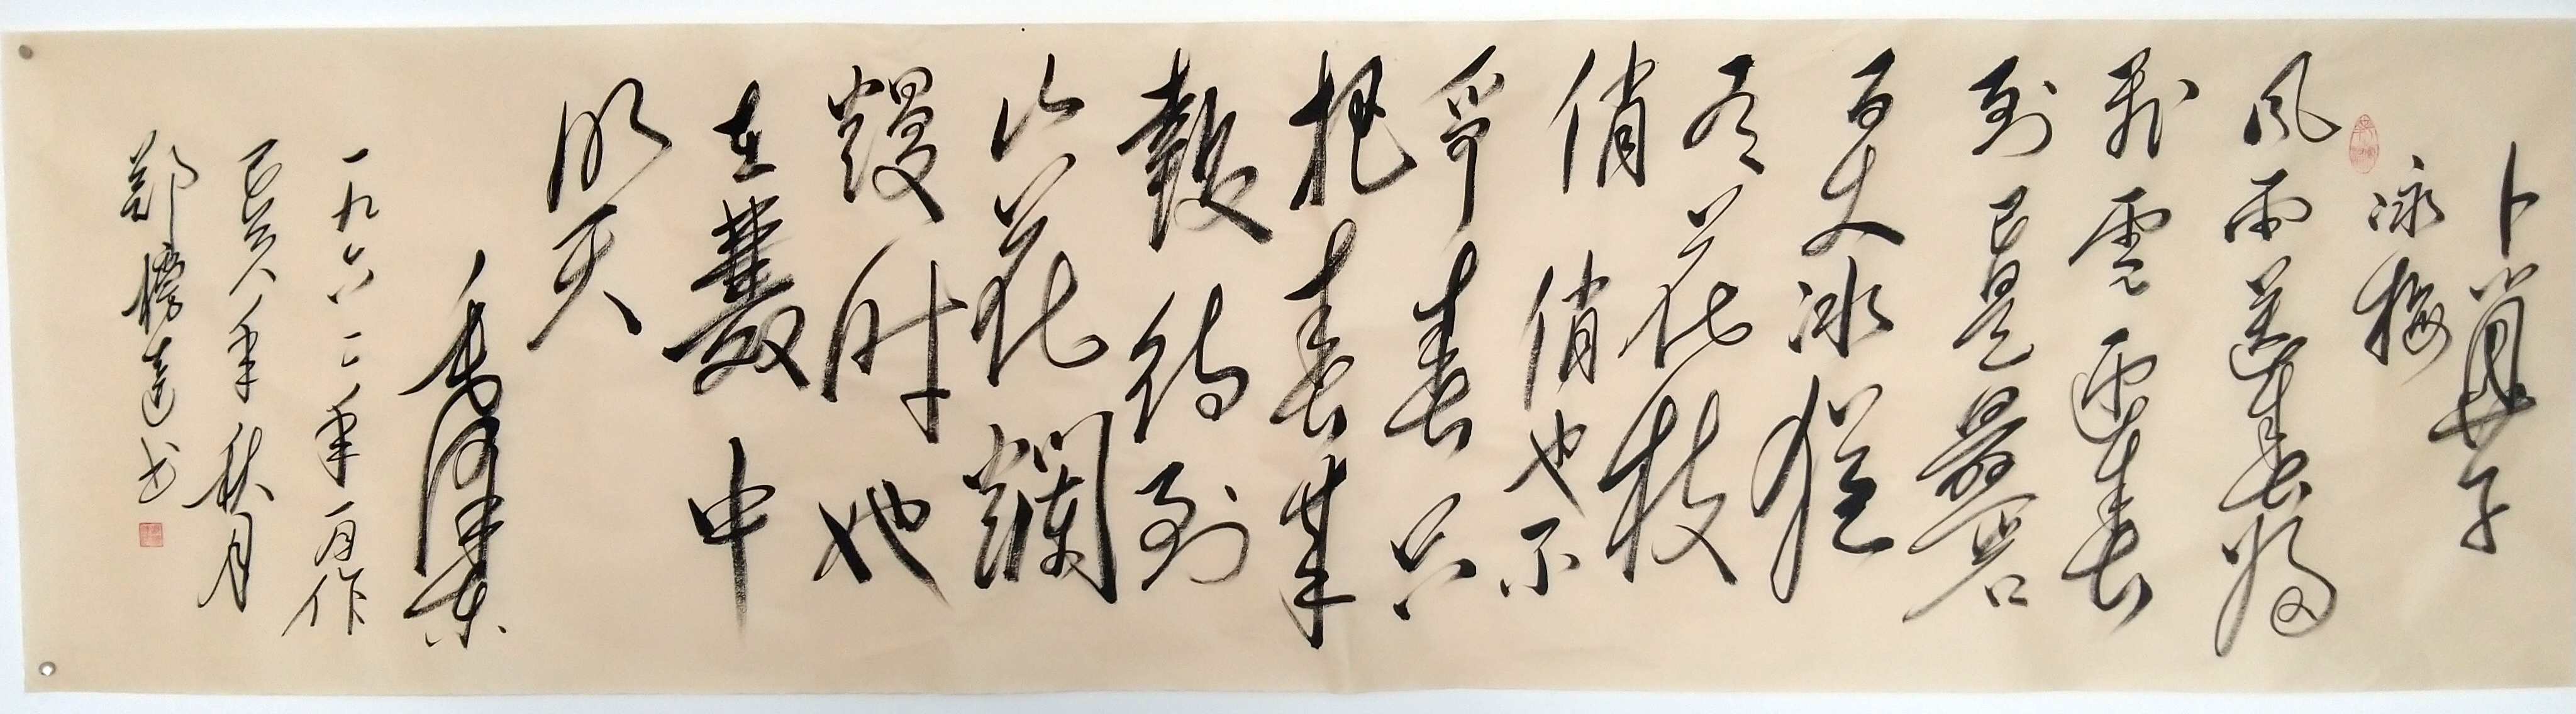 卜算子
咏梅
风雨送春归
飛雪迎春
到已是懸岩
百丈冰犹
有花枝
俏俏也不
争春只
把春来
報待到
山花爛
熳时她
在叢中
笑
毛泽东
一九六二年一月作
己亥年秋月
郑榜達书